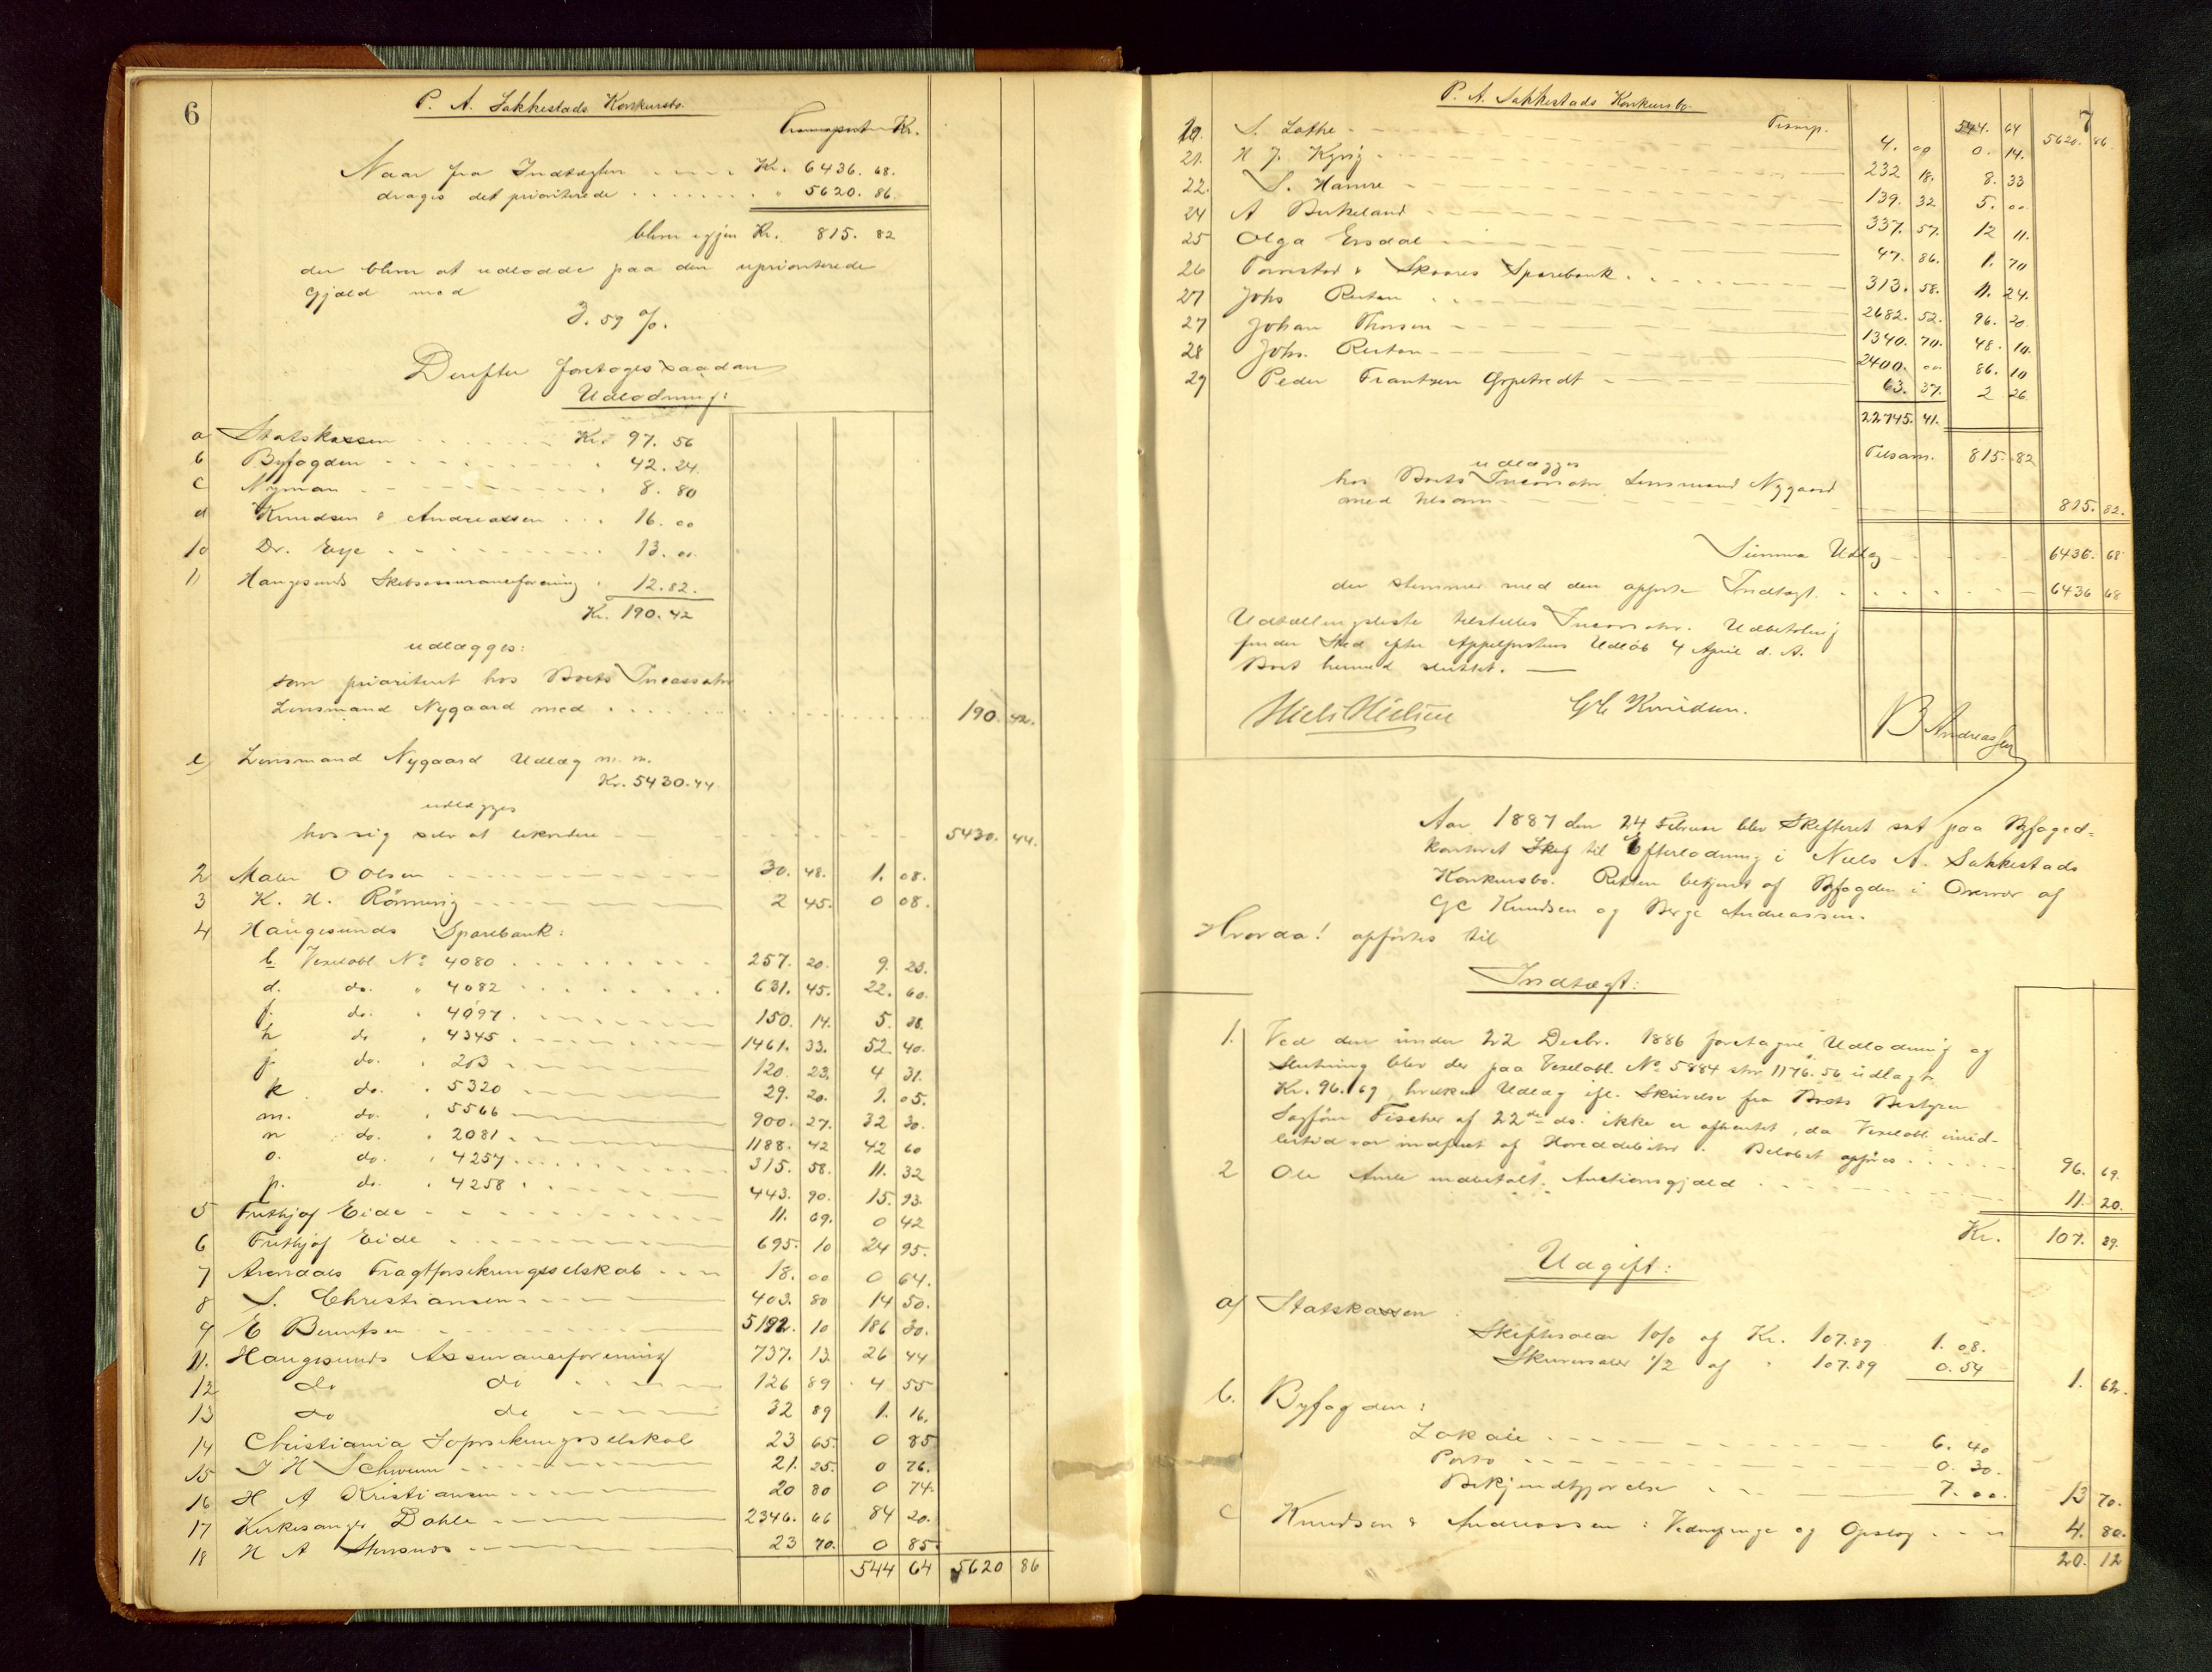 6
P. A. Sakkestads Konkursbo.
Transport Kr.
Naar fra Indtægten Kr. 6436. 68.
drages det prioriterede " 5620. 86.
bliver igjen Kr. 815. 82
der bliver at udlodde paa den uprioriterede
Gjæld med
3.59 %.
Derefter foretoges saadan
Udlodning:
a Statskassen Kr. 97. 56
b Byfogden 42. 24.
c Nyman 8. 80
d Knudsen & Andreassen 16. 00
10 Dr. Eye 13. 00
11 Haugesunds Skibsassuranceforening 12. 82.
Kr. 190. 42
udlægges:
som prioriteret hos Boets Incassator
Lensmand Nygaard med 190. 42.
e) Lensmand Nygaard Udlæg m. m.
Kr. 5430.44
udlægges
hos sig selv at likvidere 5430. 44.
2 Maler O Olsen 30. 48. 1. 08.
3 K. H. Rönnevig 2 45. 0 08.
4 Haugesunds Sparebank:
b. Vexelobl. No 4080 257. 20. 9. 23.
d. do. " 4082 631. 45. 22. 60.
f. do. " 4097. 150. 14. 5. 38.
h do " 4345 1461. 33. 52. 40.
j. do. " 263 120. 23. 4 31.
k do. " 5320 29. 20. 1. 05.
m. do. " 5566 900. 27. 32 30.
n do. " 2081 1188. 42 42 60
o. do. " 4257 315. 58. 11. 32
p. do. " 4258 443. 90. 15. 93.
5 Frithjof Eide 11. 69. 0 42
6 Frithjof Eide 695. 10 24 95.
7 Arendals Fragtforsikringsselskab 18. 00 0 64.
8 S. Christiansen 403. 80 14 50.
9 E Berentsen 5192. 10 186 30.
11. Haugesunds Assuranceforening 737. 13. 26 44
12 do do 126 89 4 55
13 do do 32 89 1. 16.
14 Christiania Søforsikringsselskab 23 65. 0 85
15 J H Schwenn 21. 25. 0 76.
16 H A Kristiansen 20 80 0 74.
17 Kirkesanger Dahle 2346. 66 84 20.
18 H A Stensnes 23 70. 0 85.
544 64 5620 86
P. A. Sakkestads Konkursbo. 7
Transp. 544. 64 5620. 86
20. S. Lothe 4. 00 0. 14.
21. H J. Kyvig 232 18. 8. 33
22. S. Hamre 139. 32 5. 00
24 A Birkeland 337. 57. 12 11.
25 Olga Ersdal 47. 86. 1. 70
26 Torvestad & Skaares Sparebank 313. 58. 11. 24.
27 Johs Reutan 2682. 52. 96. 20
27 Johan Thorsen 1340. 70. 48. 10.
28 Johs. Reutan 2400. 00 86. 10
29 Peder Frantzen Gopetvedt 63. 37. 2 26.
22745. 41.
Tilsam. 815. 82
udlægges
hos Boets Incassator Lensmand Nygaard
med tilsam 815. 82.
Summa Udlæg 6436. 68
der stemmer med den opførte Indtægt. 6436 68
Udtællingsliste tilstilles Incassator. Udbetaling
finder Sted efter Appelfristens Udløb 4 April d. A.
Boet hermed sluttet.
Niels Nielsen GC Knudsen. B Andreassen
Aar 1887 den 24 Februar blev Skifteret sat paa Byfoged=
kontoret til Efterlodning i Niels A. Sakkestads
Konkursbo. Retten betjent af Byfogden i Overvær af
GC Knudsen og Børge Andreassen.
Hvorda! opførtes til
Indtægt:
1. Ved den under 22 Decbr. 1886 foretagne Udlodning og
Slutning blev der paa Vexelobl. No 5884 stor 1176.56 udlagt
Kr. 96.69, hvilken Udlæg ifl. Skrivelse fra Boets Bestyrer
Sagfører Fischer af 22de ds. ikke er afhentet, da Vexelobl. imid-
lertid var indfriet af Hoveddebitor. Beløbet opføres 96. 69.
2 Ole Amli indbetalt Auctionsgjæld 11. 20.
Kr. 107. 89.
Udgift:
a) Statskassen:
Skiftesalær 1 0/0 af Kr. 107.89 1. 08.
Skriversalær 1/2 af " 107.89 0. 54
1. 62.
b. Byfogden:
Lokale 6. 40
Porto 0. 30.
Bekjendtgjørelse 7. 00.
13 70.
c Knudsen & Andreassen: Vidnepenge og Opslag 4. 80.
20. 12